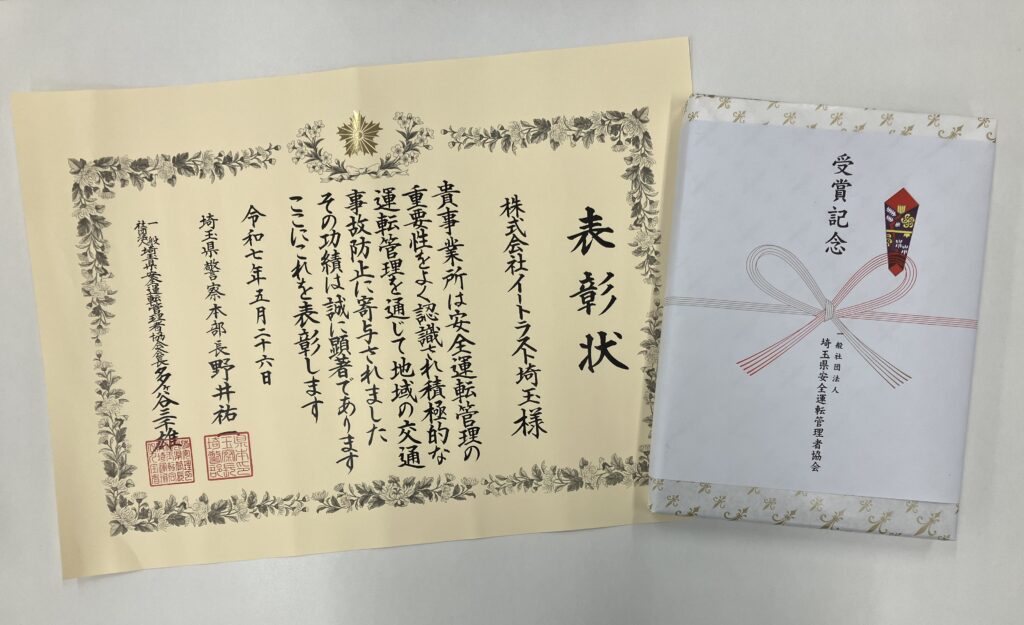 表彰状
株式会社イートラスト埼玉様
貴事業所は安全運転管理の
重要性をよく認識され積極的な
運転管理を通じて地域の交通
事故防止に寄与されました
その功績は誠に顕著であります
ここにこれを表彰します
令和七年五月二十六日
埼玉県警察本部長 野井祐一
一般社団法人 埼玉県安全運転管理者協会会長 多ヶ谷三千雄
受賞記念
一般社団法人
埼玉県安全運転管理者協会